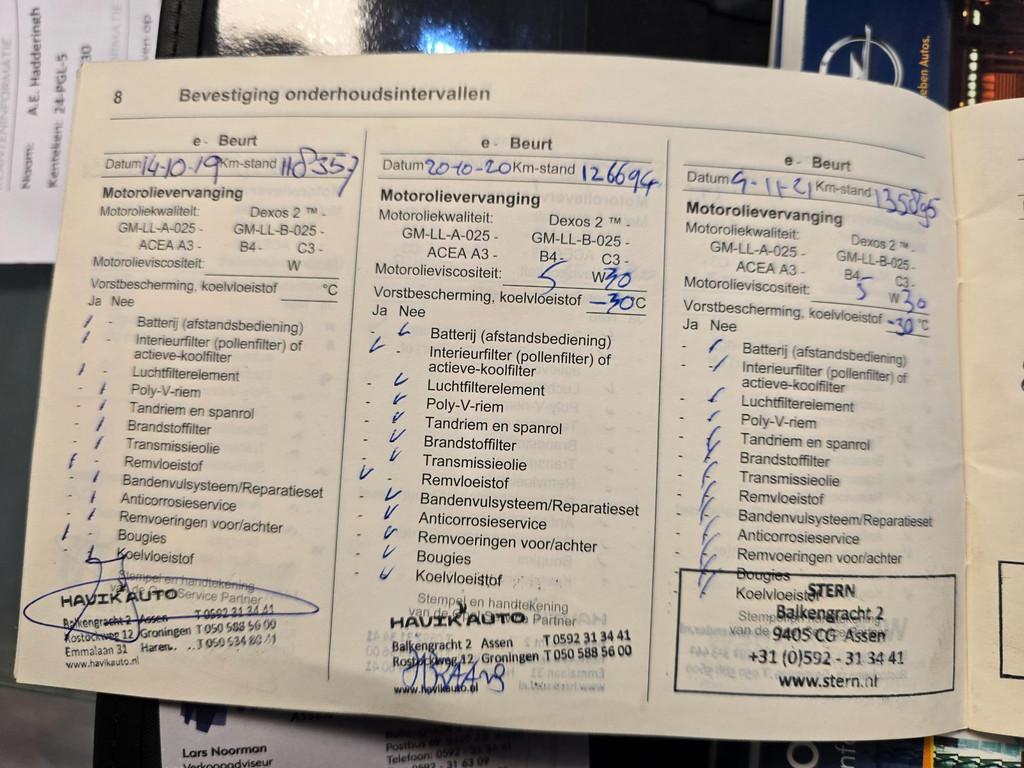 Naam: A.E. Hadderingh
Kenteken: 24-PGL-5
8 Bevestiging onderhoudsintervallen
e - Beurt
Datum 14-10-19 Km-stand 118357
Motorolievervanging
Motoroliekwaliteit: Dexos 2 ™ -
GM-LL-A-025 - GM-LL-B-025 -
ACEA A3 - B4 - C3 -
Motorolieviscositeit: W
Vorstbescherming, koelvloeistof °C
Ja Nee
Batterij (afstandsbediening)
Interieurfilter (pollenfilter) of
actieve-koolfilter
Luchtfilterelement
Poly-V-riem
Tandriem en spanrol
Brandstoffilter
Transmissieolie
Remvloeistof
Bandenvulsysteem/Reparatieset
Anticorrosieservice
Remvoeringen voor/achter
Bougies
Koelvloeistof
Stempel en handtekening
Service Partner
HAVIK AUTO
Balkengracht 2 Assen T 0592 31 34 41
Rostockweg 12 Groningen T 050 588 56 00
Emmalaan 31 Haren
www.havikauto.nl
e - Beurt
Datum 20-10-20 Km-stand 126694
Motorolievervanging
Motoroliekwaliteit: Dexos 2 ™ -
GM-LL-A-025 - GM-LL-B-025 -
ACEA A3 - B4 - C3 -
Motorolieviscositeit: 5 W30
Vorstbescherming, koelvloeistof -30°C
Ja Nee
Batterij (afstandsbediening)
Interieurfilter (pollenfilter) of
actieve-koolfilter
Luchtfilterelement
Poly-V-riem
Tandriem en spanrol
Brandstoffilter
Transmissieolie
Remvloeistof
Bandenvulsysteem/Reparatieset
Anticorrosieservice
Remvoeringen voor/achter
Bougies
Koelvloeistof
Stempel en handtekening
van de Partner
HAVIK AUTO
Balkengracht 2 Assen T 0592 31 34 41
Rostockweg 12 Groningen T 050 588 56 00
www.havikauto.nl
e - Beurt
Datum 9-11-21 Km-stand 135895
Motorolievervanging
Motoroliekwaliteit: Dexos 2 ™ -
GM-LL-A-025 - GM-LL-B-025 -
ACEA A3 - B4 - C3 -
Motorolieviscositeit: 5 W 30
Vorstbescherming, koelvloeistof -30 °C
Ja Nee
Batterij (afstandsbediening)
Interieurfilter (pollenfilter) of
actieve-koolfilter
Luchtfilterelement
Poly-V-riem
Tandriem en spanrol
Brandstoffilter
Transmissieolie
Remvloeistof
Bandenvulsysteem/Reparatieset
Anticorrosieservice
Remvoeringen voor/achter
Bougies
Koelvloeistof
van de
STERN
Balkengracht 2
9405 CG Assen
+31 (0)592 - 31 34 41
www.stern.nl
eben Autos.
Lars Noorman
Verkoopadviseur